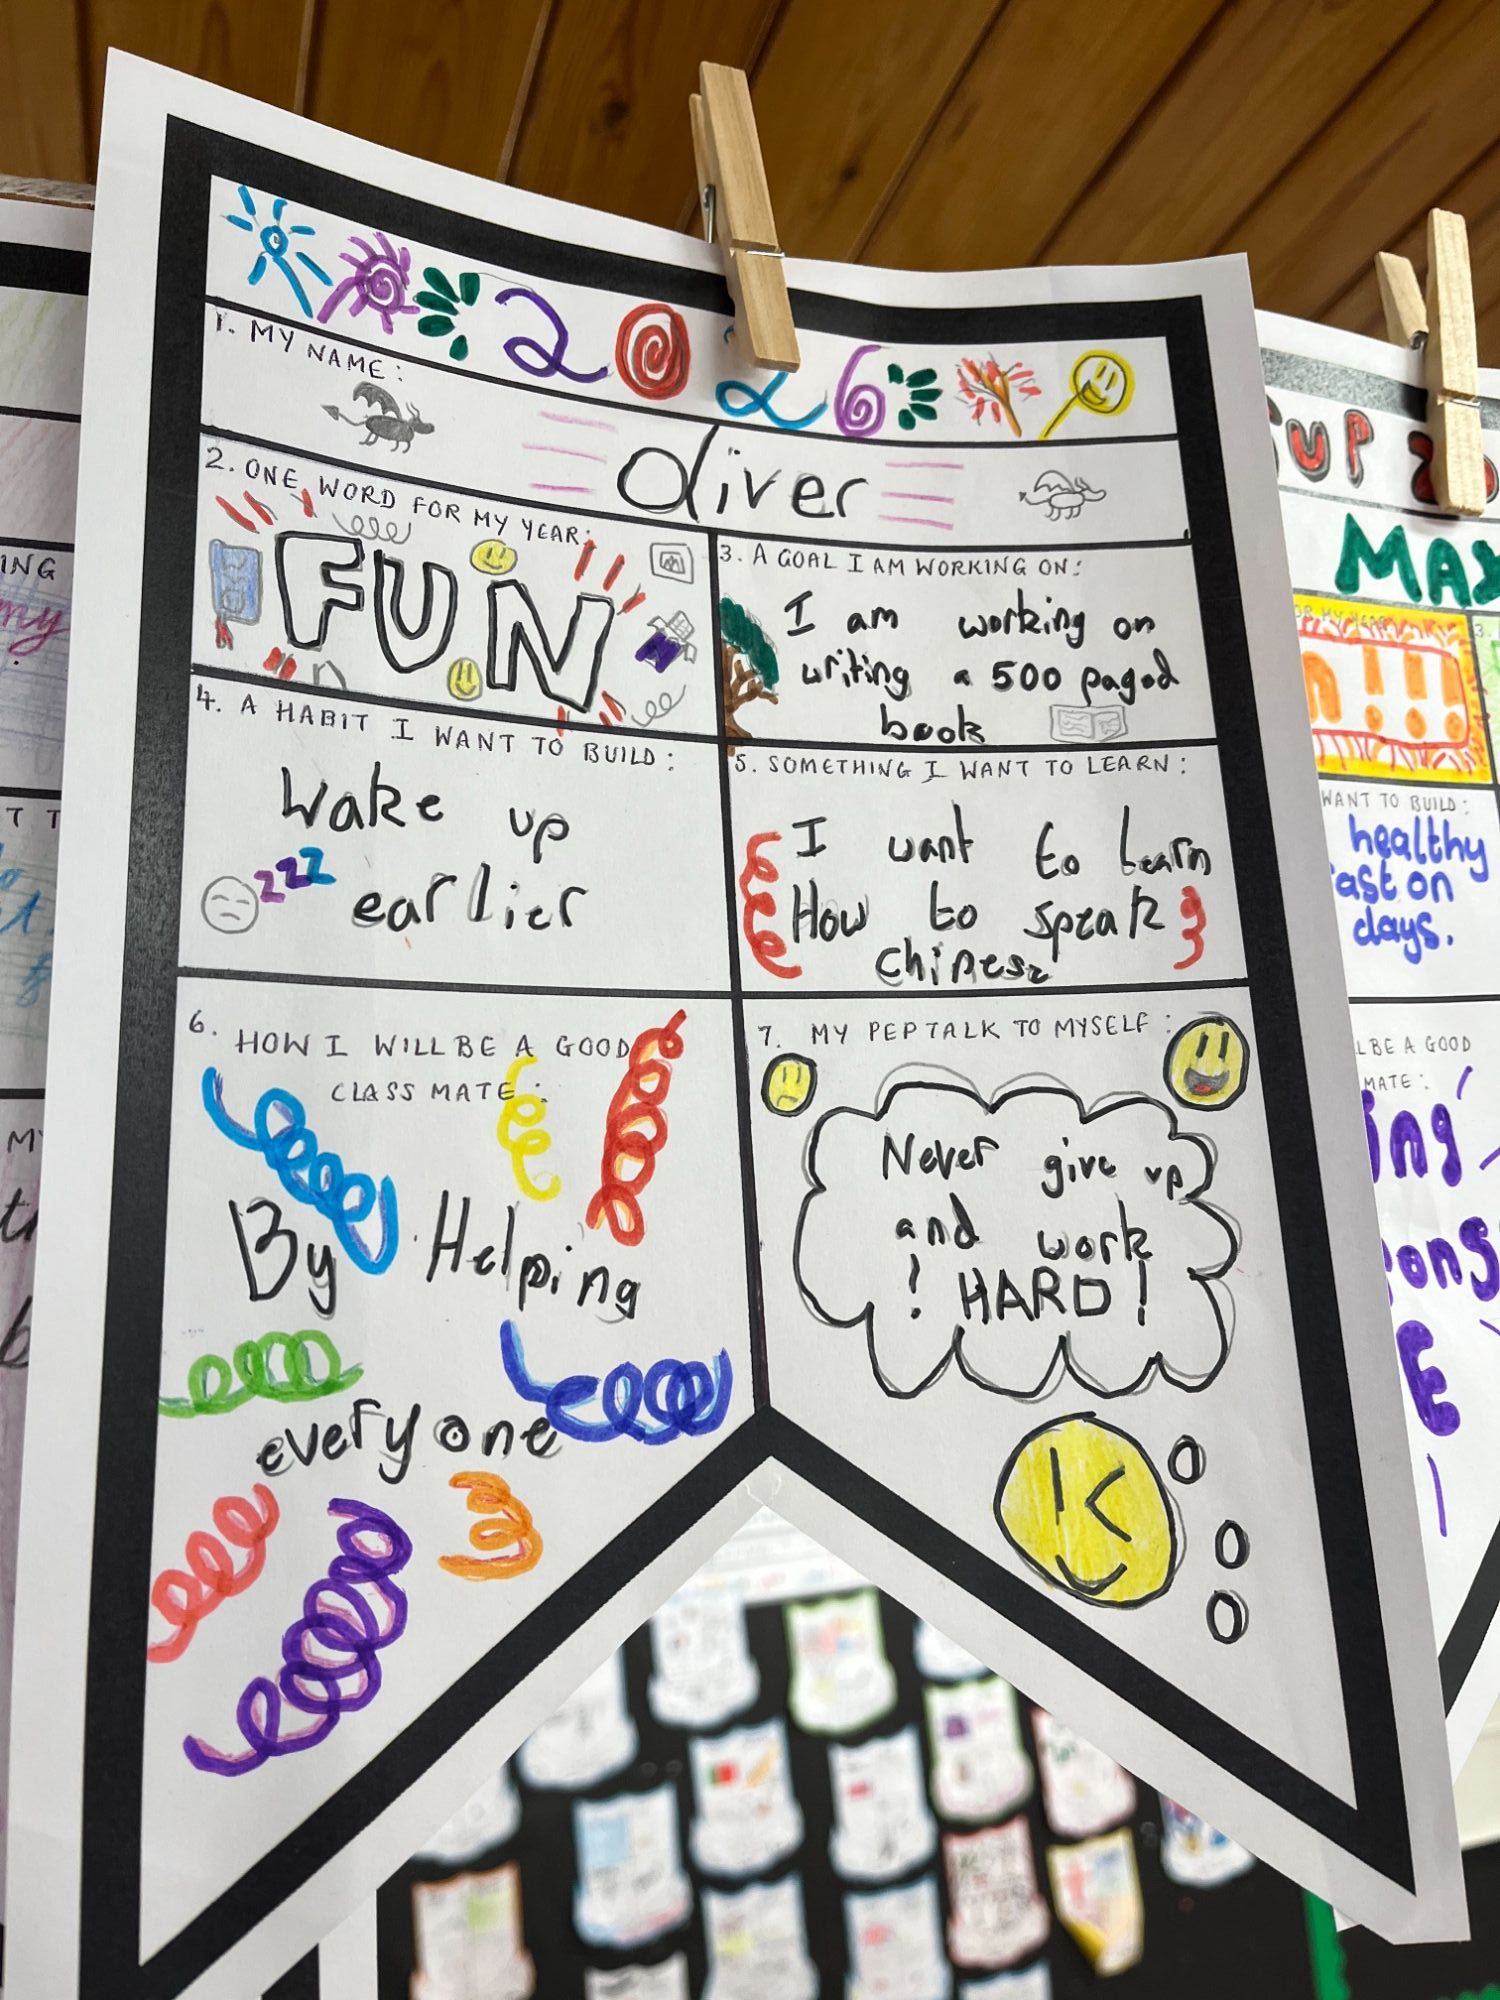 2026
1. MY NAME:
Oliver
2. ONE WORD FOR MY YEAR:
FUN
3. A GOAL I AM WORKING ON:
I am working on
writing a 500 paged
book
4. A HABIT I WANT TO BUILD:
Wake up
zzz
earlier
5. SOMETHING I WANT TO LEARN:
I want to learn
How to speak
chinese
6. HOW I WILL BE A GOOD
CLASS MATE:
By Helping
everyone
7. MY PEP TALK TO MYSELF:
Never give up
and work
! HARD !
UP
MAX
n!!!
WANT TO BUILD:
healthy
on
days.
BE A GOOD
MATE:
ING
my